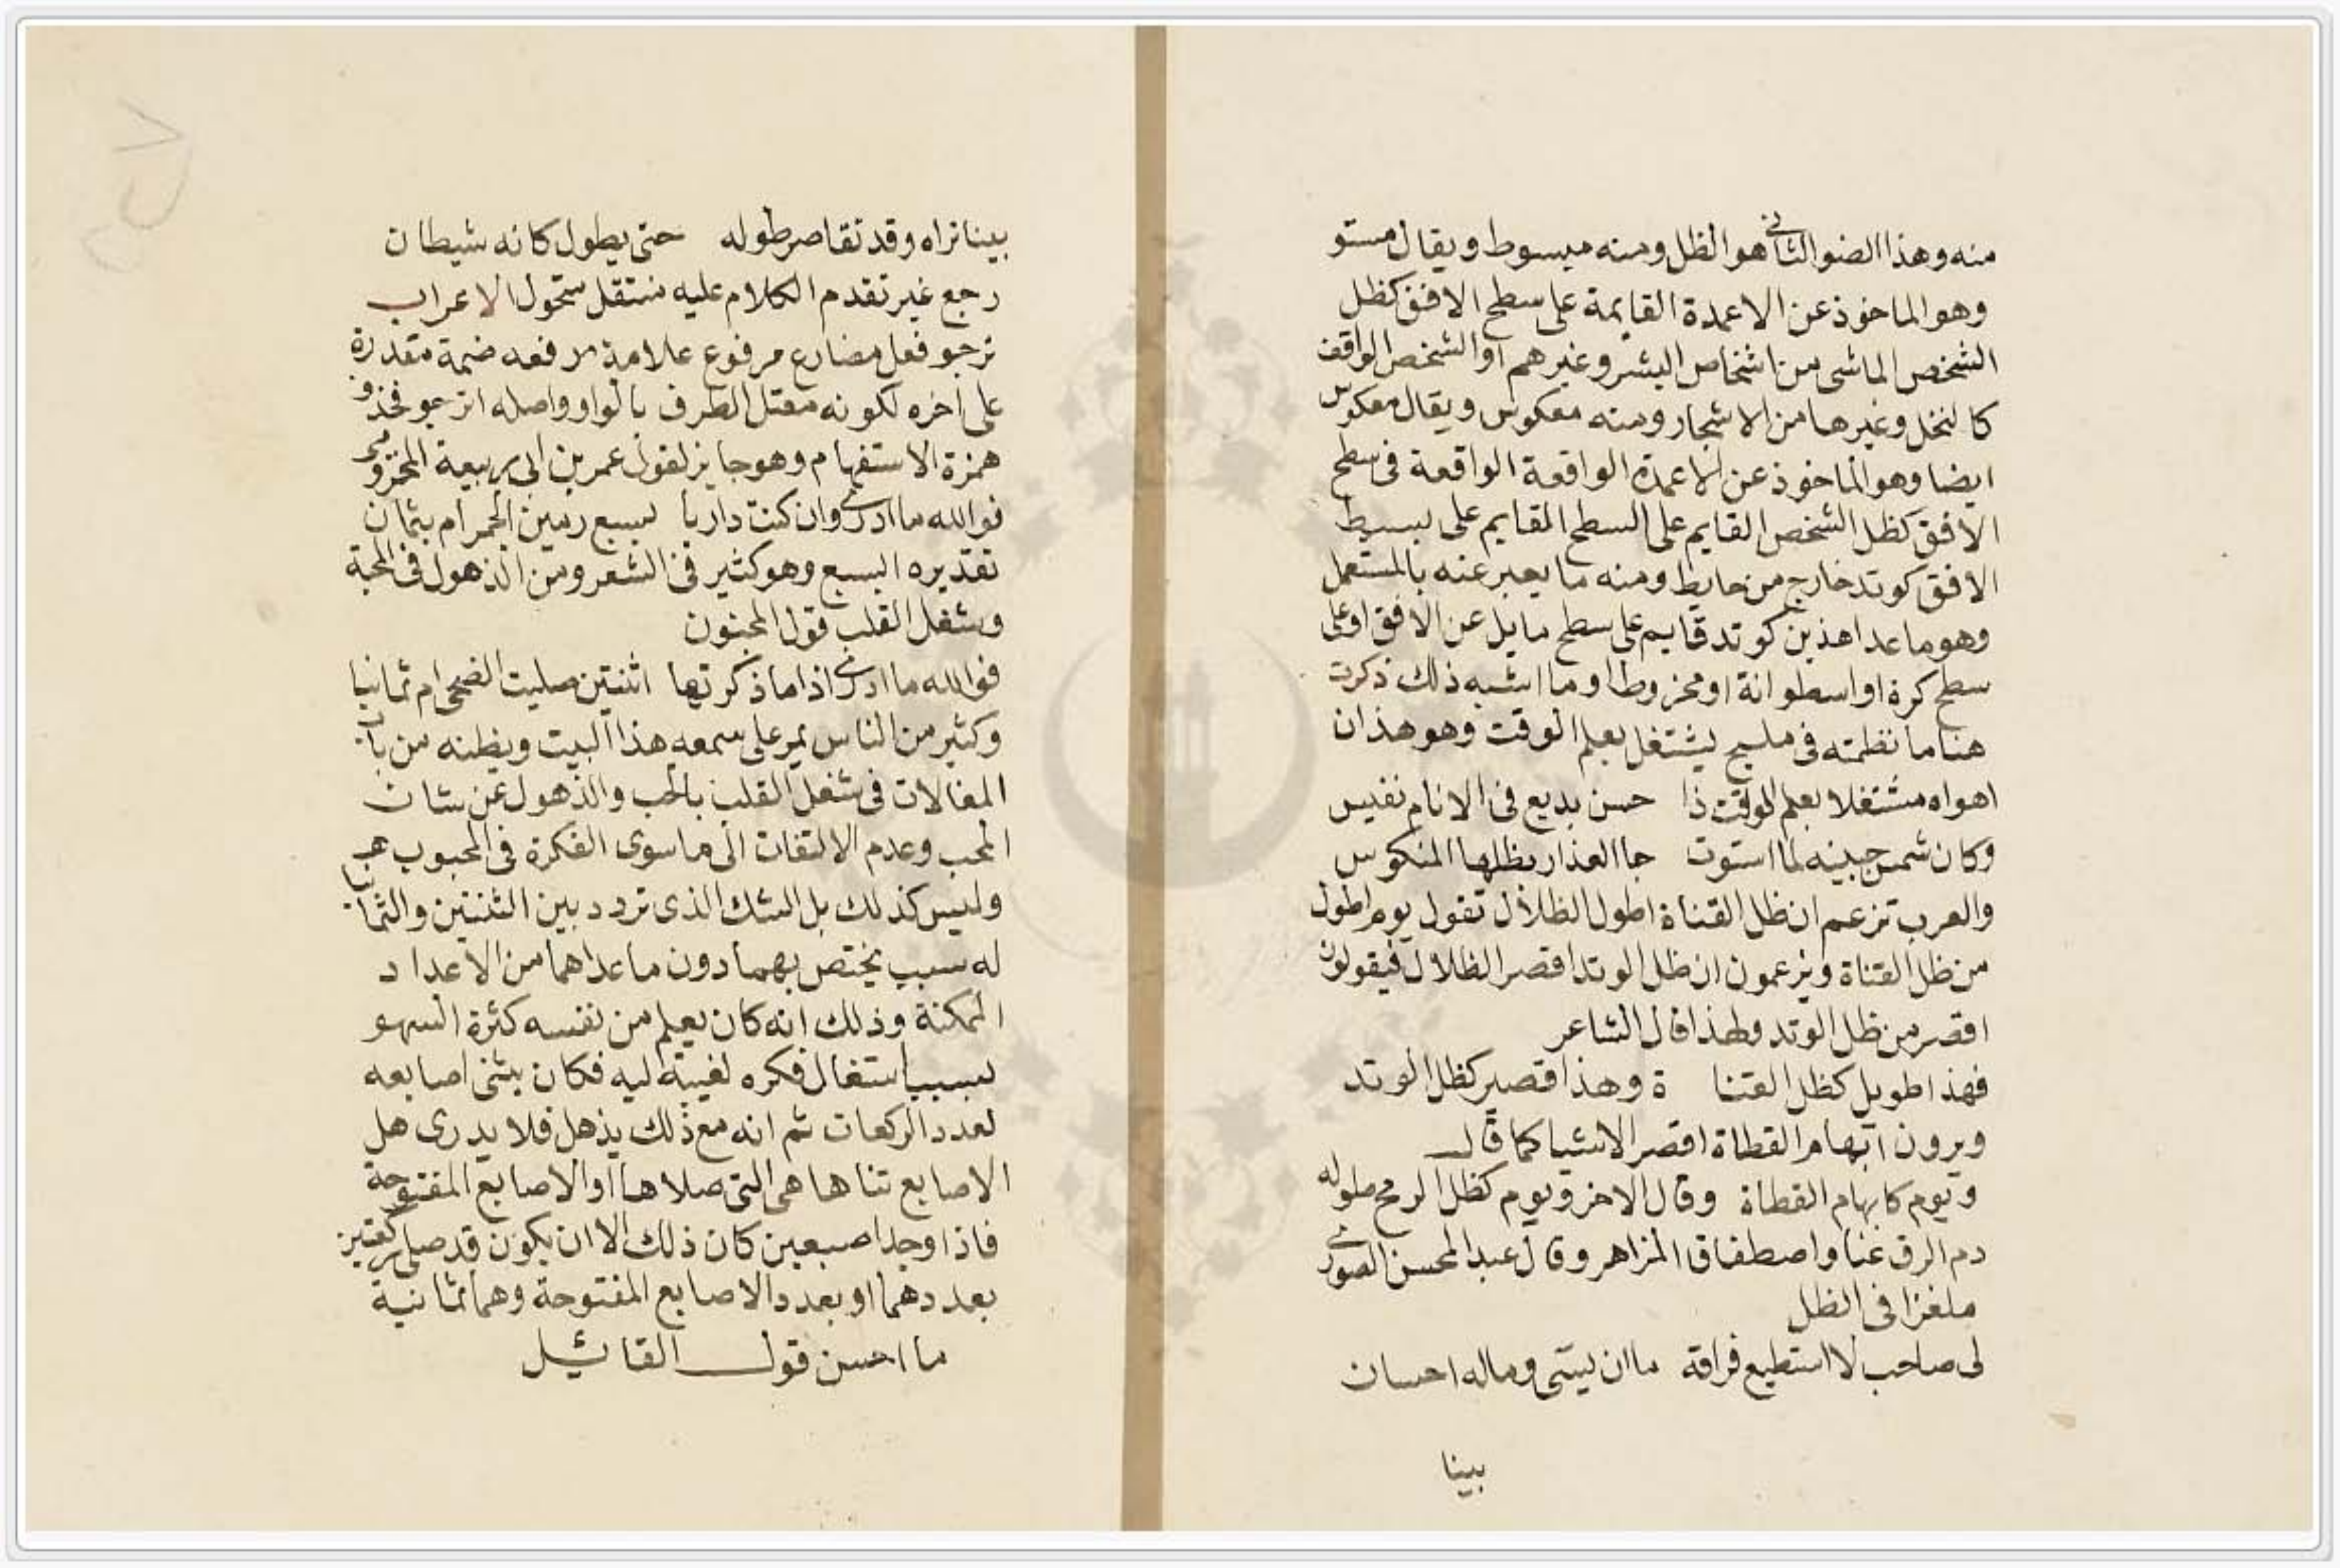 منه وهذا الضو الثاني هو الظل ومنه مبسوط ويقال مستو
وهو الماخوذ عن الاعمدة القايمة على سطح الافق كظل
الشخص الماشى من اشخاص البشر وغيرهم او الشخص الواقف
كالنخل وغيرها من الاشجار ومنه معكوس ويقال معكوس
ايضا وهو الماخوذ عن الاعمدة الواقعة الواقعة فى سطح
الافق كظل الشخص القايم على السطح القايم على بسيط
الافق كوتد خارج من حايط ومنه ما يعبر عنه بالمستعمل
وهو ما عدا هذين كوتد قايم على سطح مايل عن الافق او على
سطح كرة او اسطوانة او مخروط او ما اشبه ذلك ذكرت
هنا ما نظمته فى مليح يشتغل بعلم الوقت وهو هذان
اهواه مشتغلا بعلم الوقت ذا حسن بديع فى الانام نفيس
وكان شمس جبينه لما استوت جا العذار بظلها المنكوس
والعرب تزعم ان ظل القناة اطول الظلال تقول يوم اطول
من ظل القناة ويزعمون ان ظل الوتد اقصر الظلال فيقولون
اقصر من ظل الوتد ولهذا قال الشاعر
فهذا طويل كظل القنا ة وهذا قصير كظل الوتد
ويرون ابهام القطاة اقصر الاشيا كما قال
ويوم كابهام القطاة وقال الاخر ويوم كظل الرمح طوله
دم الزق عنا واصطفاق المزاهر وقال عبد المحسن الصوري
ملغزا فى الظل
لى صاحب لا استطيع فراقه ما ان يسئى وماله احسان
بينا
بينا تراه وقد تقاصر طوله حتى يطول كانه شيطان
رجع غير تقدم الكلام عليه منتقل متحول الاعراب
ترجو فعل مضارع مرفوع علامة رفعه ضمة مقدرة
على اخره لكونه معتل الطرف بالواو واصله اترجو فحذف
همزة الاستفهام وهو جايز لقول عمر بن ابى ربيعة المخزومي
فوالله ما ادرى وان كنت داريا بسبع رمين الجمر ام بثمان
تقديره ابسبع وهو كثير فى الشعر ومن الذهول فى المحبة
وشغل القلب قول المجنون
فوالله ما ادرى اذا ما ذكرتها اثنتين صليت الضحى ام ثمانيا
وكثير من الناس يمر على سمعه هذا البيت ويظنه من باب
المغالات فى شغل القلب بالحب والذهول عن شان
المحب وعدم الالتفات الى ما سوى الفكرة فى المحبوب
وليس كذلك بل الشك الذى تردد بين الثنتين والثمانيا
له سبب يختص بهما دون ما عداهما من الاعداد
الممكنة وذلك انه كان يعلم من نفسه كثرة السهو
بسبب اشتغال فكره لغيبة ليه فكان يثنى اصابعه
لعدد الركعات ثم انه مع ذلك يذهل فلا يدرى هل
الاصابع ثناها هى التى صلاها او الاصابع المفتوحة
فاذا وجد اصبعين كان ذلك الا ان يكون قد صلى ركعتين
بعددهما او بعدد الاصابع المفتوحة وهما ثمانية
ما احسن قول القائل